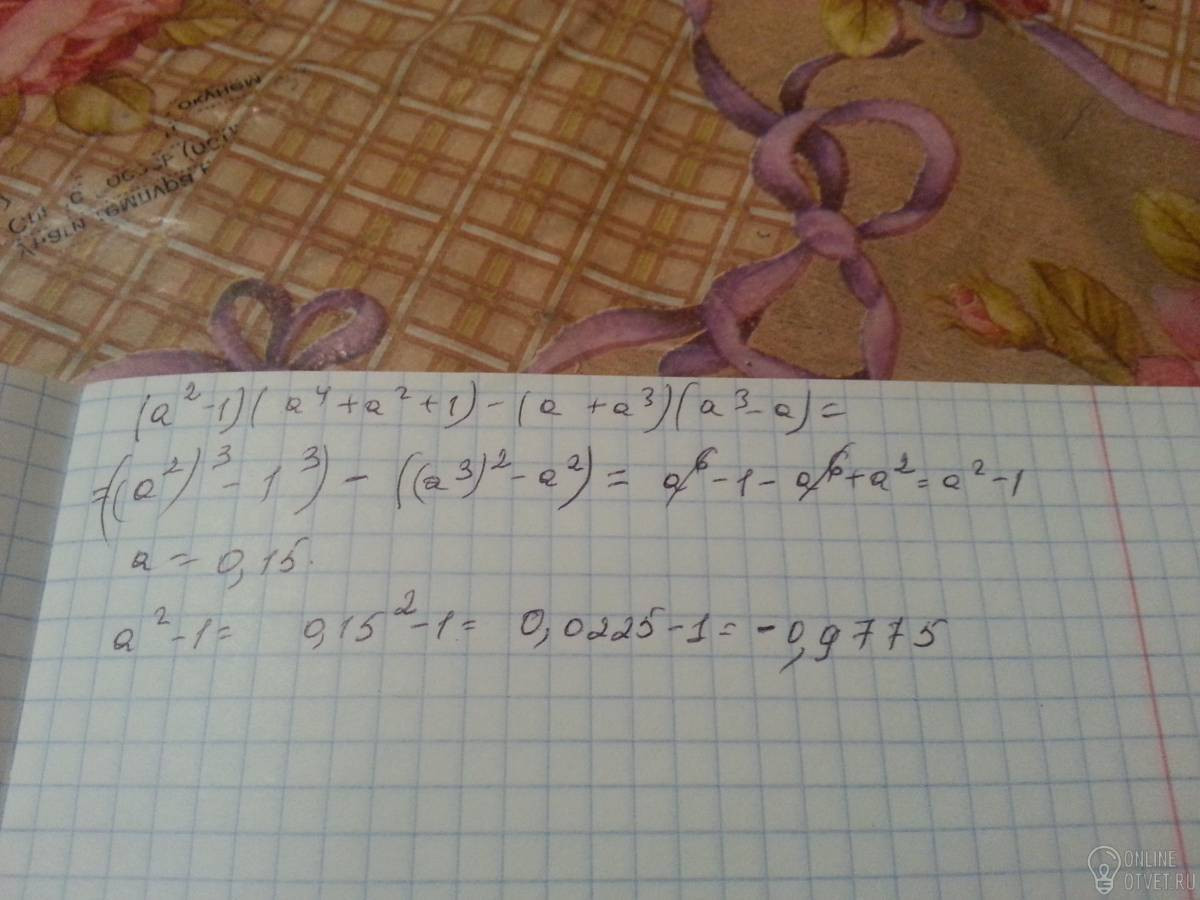 (a²-1)(a⁴+a²+1)-(a+a³)(a³-a)=
=((a²)³-1³)-((a³)²-a²)=a⁶-1-a⁶+a²=a²-1
a=0,15.
a²-1= 0,15²-1= 0,0225-1=-0,9775
ONLINE
OTVET.RU